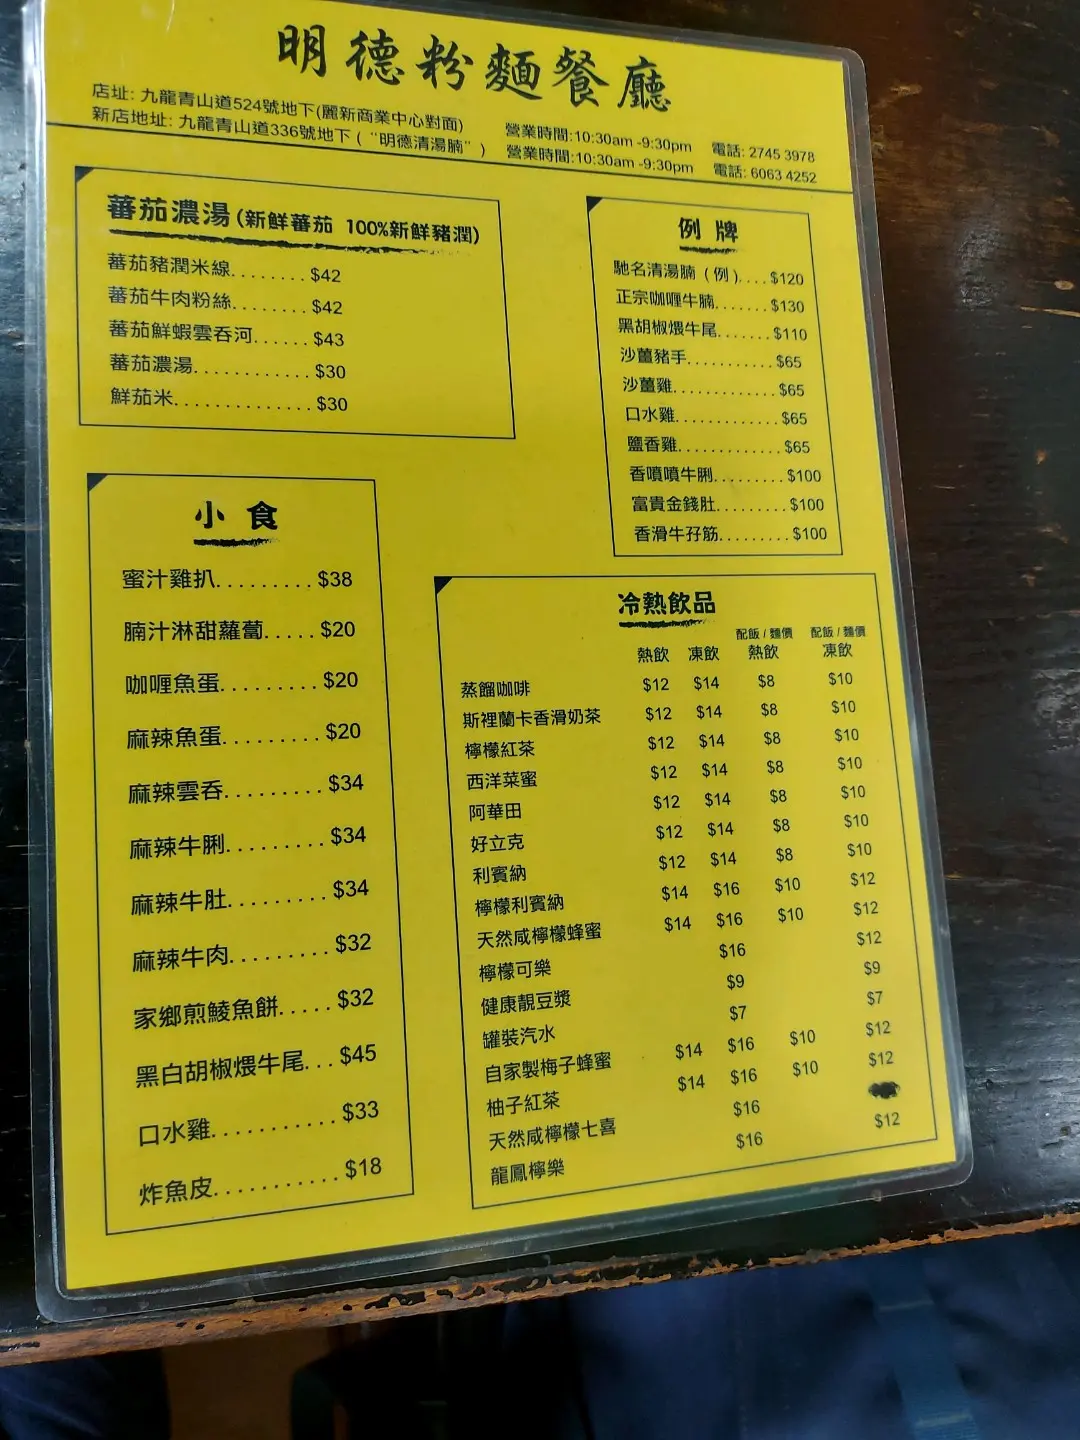 明德粉麵餐廳
店址: 九龍青山道524號地下(麗新商業中心對面) 營業時間:10:30am -9:30pm 電話: 2745 3978
新店地址: 九龍青山道336號地下 ( “明德清湯腩” ) 營業時間:10:30am -9:30pm 電話: 6063 4252
蕃茄濃湯(新鮮蕃茄 100%新鮮豬潤)
蕃茄豬潤米線........$42
蕃茄牛肉粉絲........$42
蕃茄鮮蝦雲吞河......$43
蕃茄濃湯............$30
鮮茄米..............$30
例牌
馳名清湯腩 (例)....$120
正宗咖喱牛腩.......$130
黑胡椒煨牛尾.......$110
沙薑豬手...........$65
沙薑雞.............$65
口水雞.............$65
鹽香雞.............$65
香噴噴牛脷.........$100
富貴金錢肚.........$100
香滑牛孖筋.........$100
小食
蜜汁雞扒.........$38
腩汁淋甜蘿蔔.....$20
咖喱魚蛋.........$20
麻辣魚蛋.........$20
麻辣雲吞.........$34
麻辣牛脷.........$34
麻辣牛肚.........$34
麻辣牛肉.........$32
家鄉煎鯪魚餅.....$32
黑白胡椒煨牛尾...$45
口水雞...........$33
炸魚皮...........$18
冷熱飲品
配飯/麵價 配飯/麵價
熱飲 凍飲 熱飲 凍飲
蒸餾咖啡 $12 $14 $8 $10
斯裡蘭卡香滑奶茶 $12 $14 $8 $10
檸檬紅茶 $12 $14 $8 $10
西洋菜蜜 $12 $14 $8 $10
阿華田 $12 $14 $8 $10
好立克 $12 $14 $8 $10
利賓納 $12 $14 $8 $10
檸檬利賓納 $14 $16 $10 $12
天然咸檸檬蜂蜜 $14 $16 $10 $12
檸檬可樂 $16 $12
健康靚豆漿 $9 $9
罐裝汽水 $7 $7
自家製梅子蜂蜜 $14 $16 $10 $12
柚子紅茶 $14 $16 $10 $12
天然咸檸檬七喜 $16
龍鳳檸樂 $16 $12